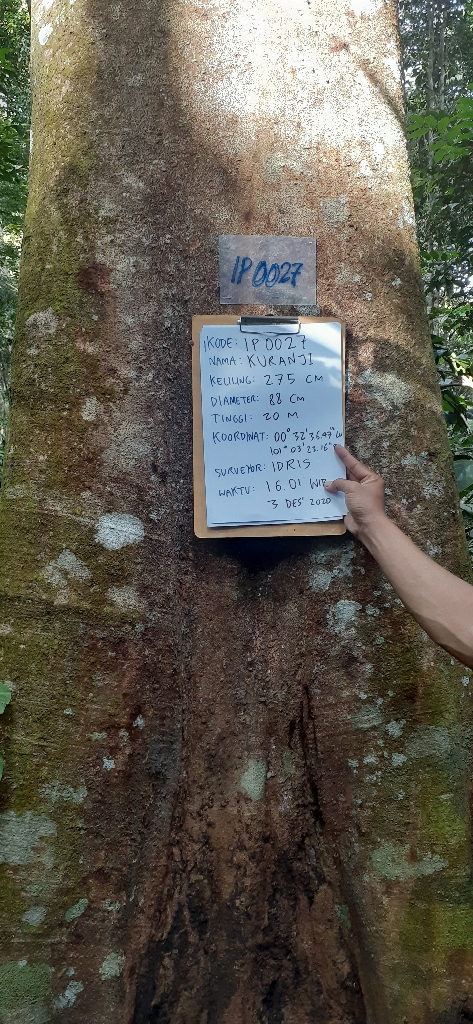 IP 0027
KODE: IP 0027
NAMA: KURANJI
KELILING: 275 CM
DIAMETER: 88 CM
TINGGI: 20 M
KOORDINAT: 00° 32' 36.47"
101° 03' 23.16"
SURVEYOR: IDRIS
WAKTU: 16.01 WIB
3 DES' 2020